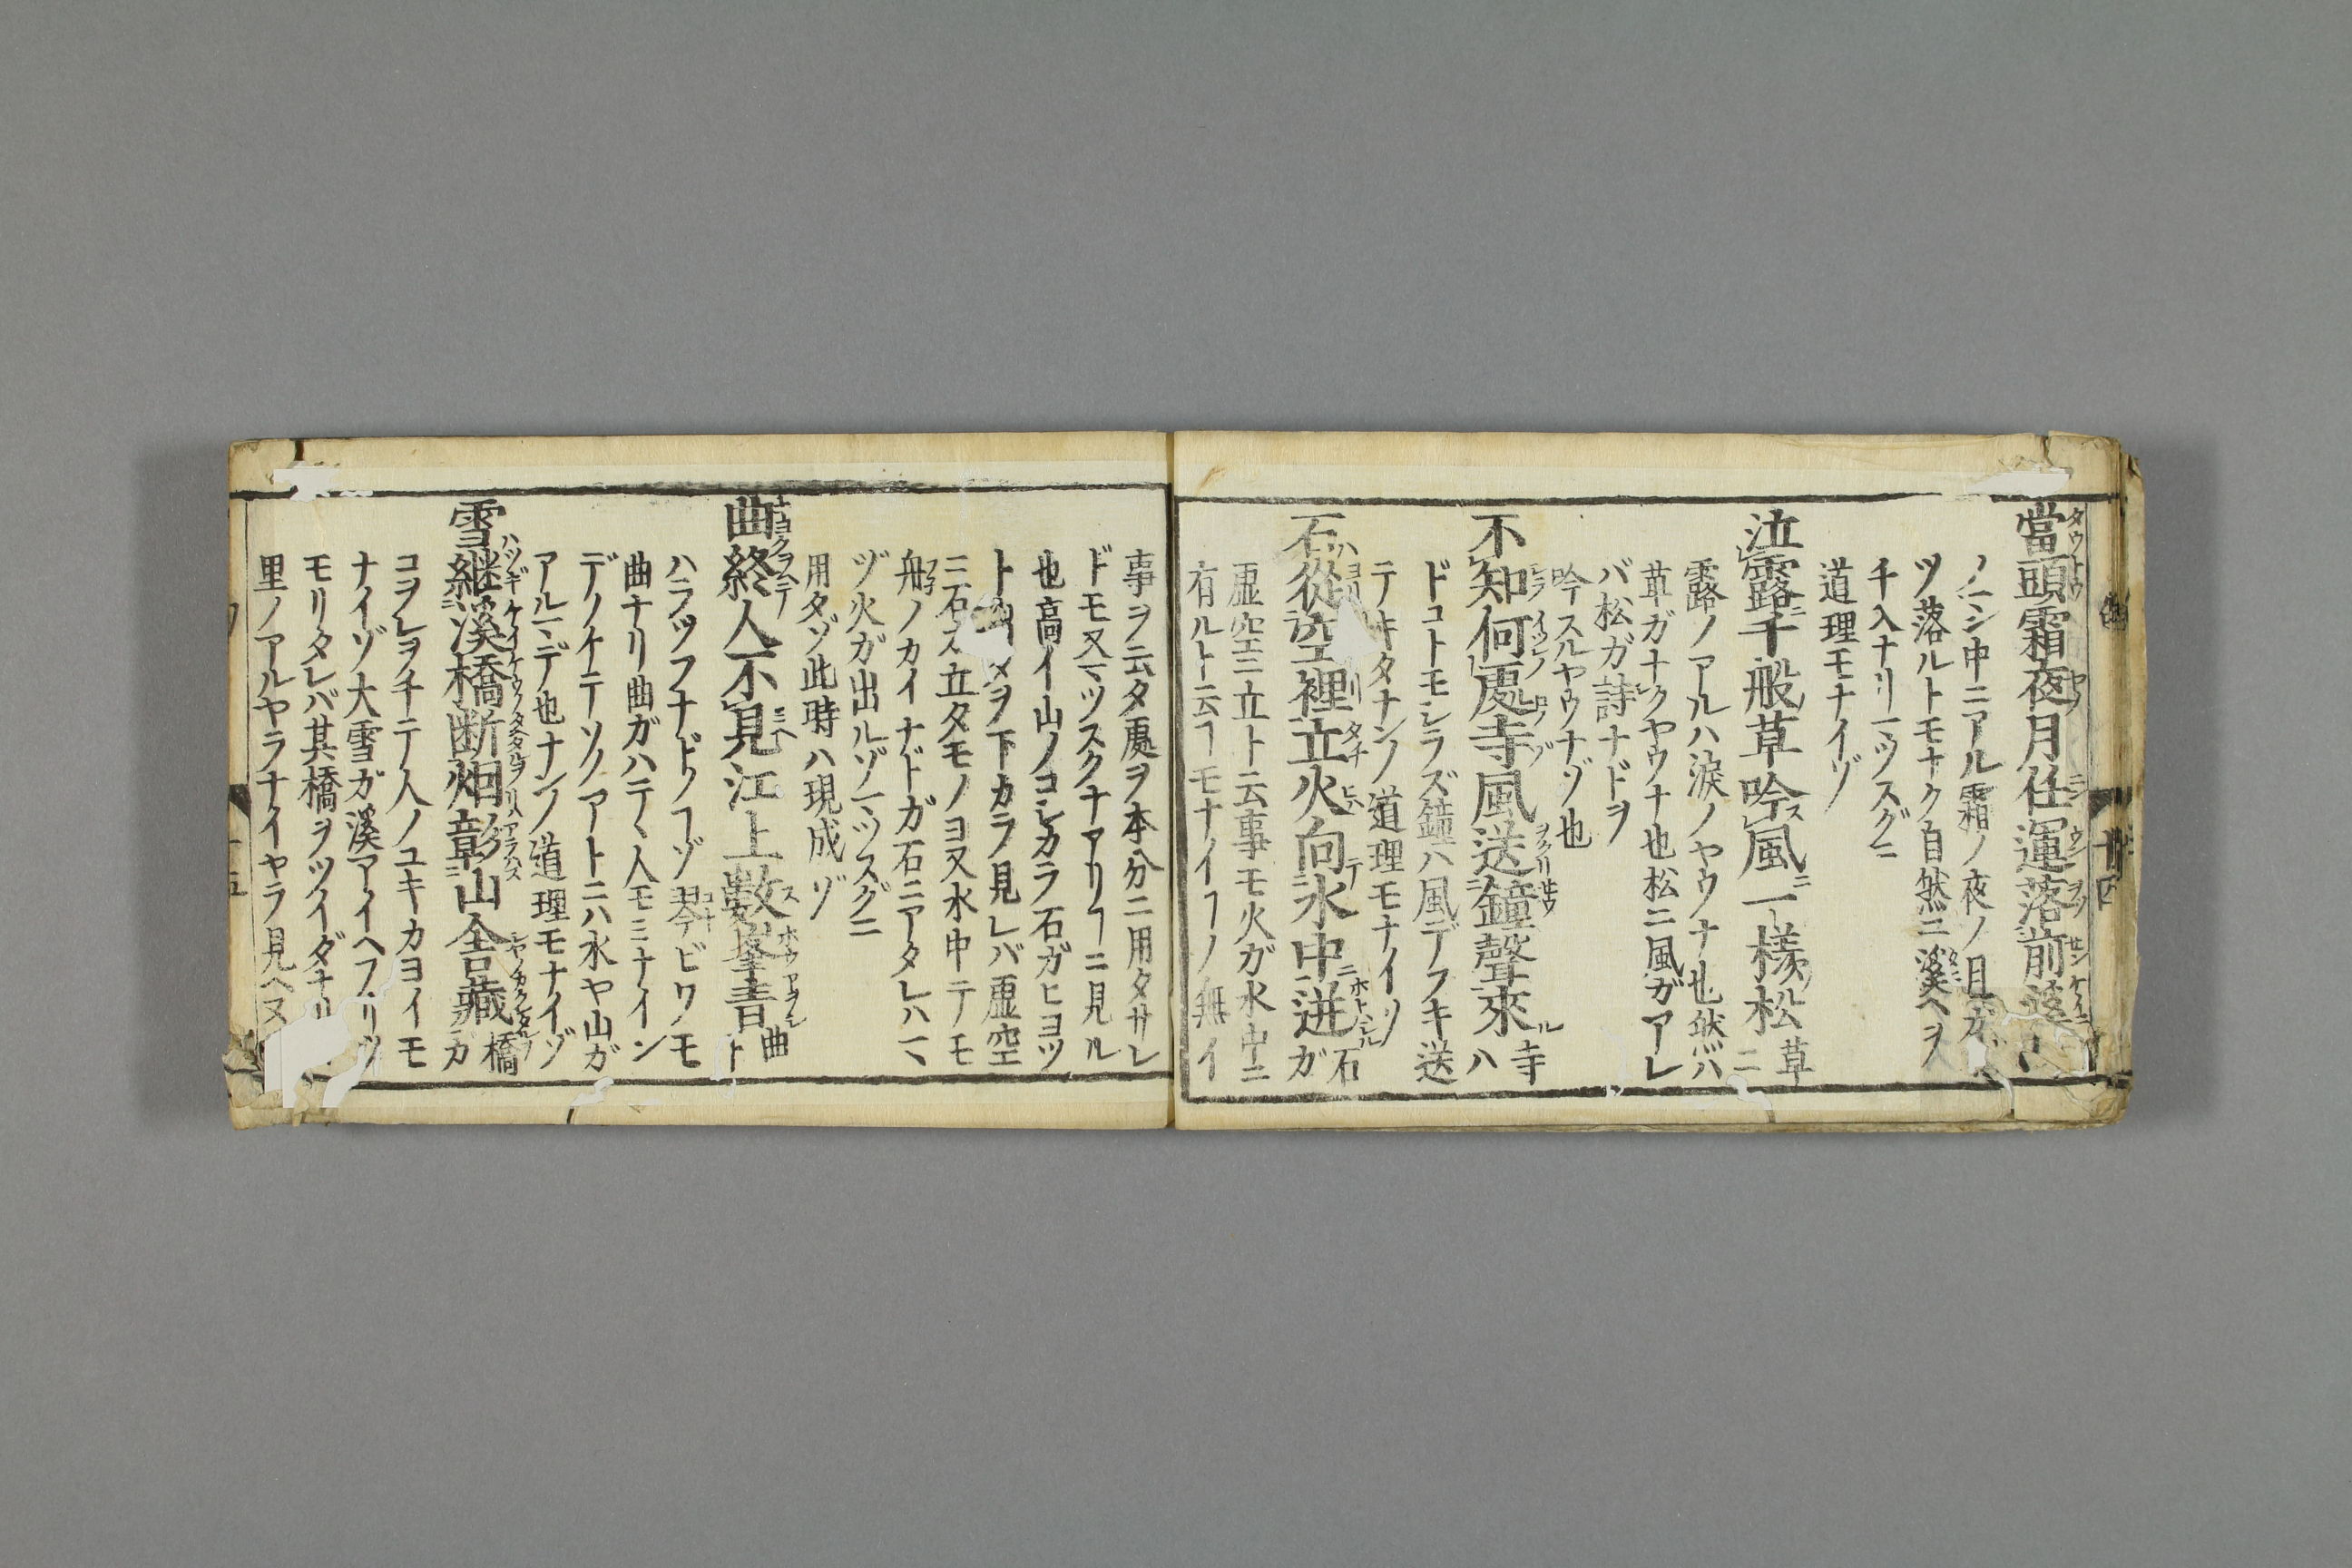 當頭霜夜月任運落前溪
ノマン中ニアル霜ノ夜ノ月ガ
ツ落ルトモナク自然ニ溪ヘヲ
チ入ナリ一ツスグニ
道理モナイゾ
泣露千般草吟風一樣松 草ニ
露ノアルハ涙ノヤウナ也然バ
草ガナクヤウナ也松ニ風ガアレ
バ松ガ詩ナドヲ
吟スルヤウナゾ也
不知何處寺風送鐘聲來 寺ハ
ドコトモシラズ鐘ハ風デフキ送
テキタナンノ道理モナイゾ
石從空裡立火向水中迸 石ガ
虚空ニ立ト云事モ火ガ水中ニ
有ルト云フモナイフノ無イ
事ヲ云タ處ヲ本分ニ用タサレ
ドモ又マツスクナアリフニ見ル
也高イ山ノヨレカラ石ガヒヨツ
トヲ下カラ見レバ虚空
ニ石ス立タモノヨ又水中テモ
舟ノカイナドガ石ニアタレハマ
ヅ火ガ出ルゾマツスグニ
用タゾ此時ハ現成ゾ
曲終人不見江上數峯青 曲ト
ハラツフナドノフゾ琴ビワモ
曲ナリ曲ガハテヽ人モミナイン
デノケテソノアトニハ水ヤ山ガ
アルマデ也ナンノ道理モナイゾ
雪継溪橋断烟彰山舎藏 橋カ
コヲレヲチテ人ノユキカヨイモ
ナイゾ大雪ガ溪アイヘフリツ
モリタレバ其橋ヲツイダナリ
里ノアルヤラナイヤラ見ヘヌ